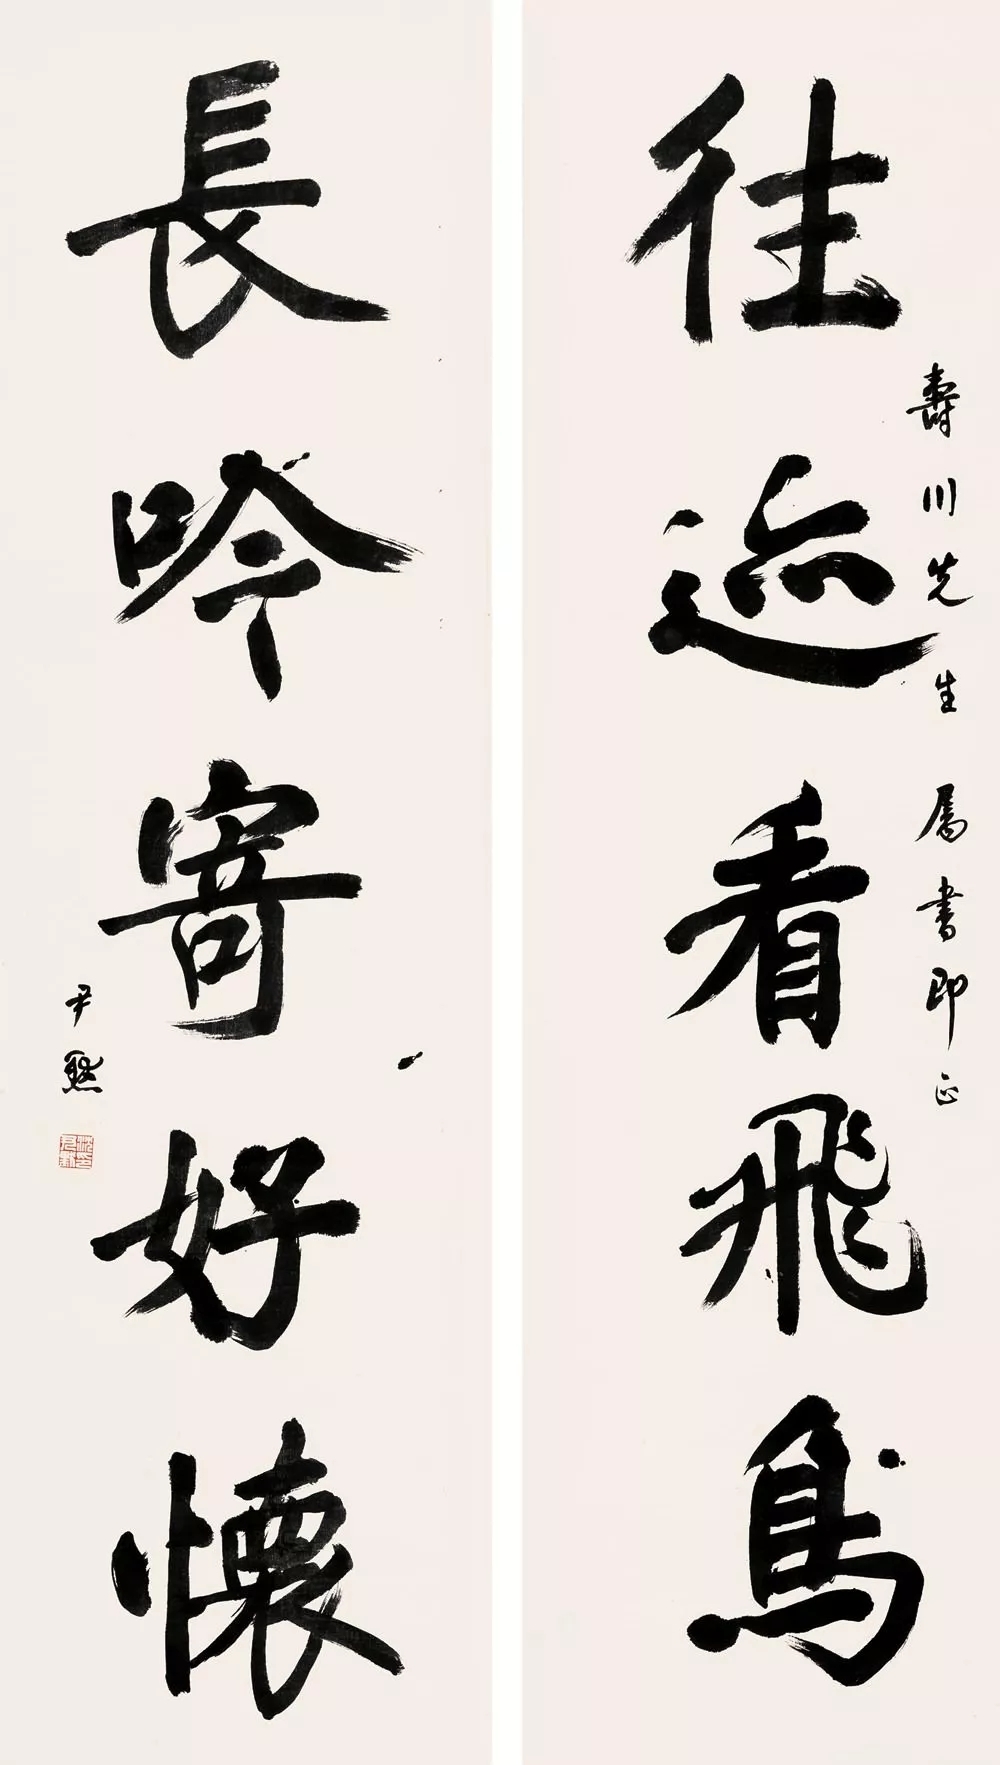 往迹看飛鳥
壽川先生屬書即正
長吟寄好懷
尹默